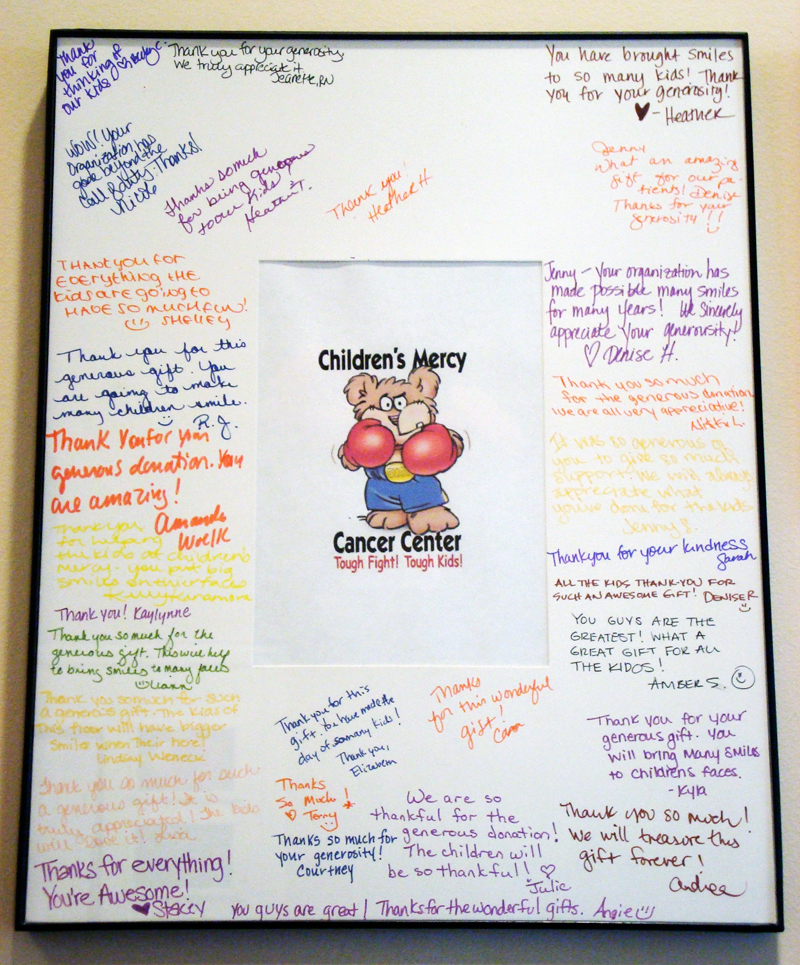 Thank
you for
thinking of
our kids
Thank you for your generosity,
We truly appreciate it
Jeanette, RN
You have brought smiles
to so many kids! Thank
you for your generosity!
- Heather
WOW! Your
Organization has
gone beyond the
Call & duty. Thanks!
Nicole
Thanks so much
for being generous
to our kids
Heather T.
Thank you!
Heather H
Jenny
What an amazing
gift for our pa-
tients! Denise
Thanks for your
generosity!!
THANK YOU FOR
EVERYTHING THE
KIDS ARE GOING TO
HAVE SO MUCH FUN!
SHELLEY
Jenny - Your organization has
made possible many smiles
for many years! We Sincerely
appreciate your generousity!
Denise H.
Thank you for this
generous gift. You
are going to make
many children smile.
R.J.
Thank you so much
for the generous donation
We are all very appreciative!
Nikki L.
Thank You for your
generous donation. You
are amazing!
Amanda
Woelk
It was so generous of
you to give so much
support. We will always
appreciate what
you've done for the kids
Jenny
Thank you
for helping
the kids at children's
Mercy. You put big
smiles on their faces
Thank you! Kaylynne
Thank you so much for the
generous gift. This will help
to bring smiles to many faces
Thank you so much for such
a generous gift. The kids of
this floor will have bigger
smiles when their here!
Lindsay
Thank you so much for such
a generous gift! It is
truly appreciated! The kids
will love it!
Thanks for everything!
You're Awesome!
Stacey
Children's Mercy
Cancer Center
Tough Fight! Tough Kids!
Thankyou for your kindness
Sarah
ALL THE KIDS THANK-YOU FOR
SUCH AN AWESOME GIFT! DENISE R
YOU GUYS ARE THE
GREATEST! WHAT A
GREAT GIFT FOR ALL
THE KIDOS!
AMBER S.
Thank you for this
gift. You have made the
day of so many kids!
Thank you,
Thanks
for this wonderful
gift!
Thank you for your
generous gift. You
will bring Many Smiles
to childrens faces.
- Kyla
Thanks
So Much!
Thanks so much for
your generosity!
Courtney
We are so
thankful for the
generous donation!
The children will
be so thankful!
Julie
Thank you so much!
We will treasure this
gift forever!
Andrea
You guys are great! Thanks for the wonderful gifts. Angie